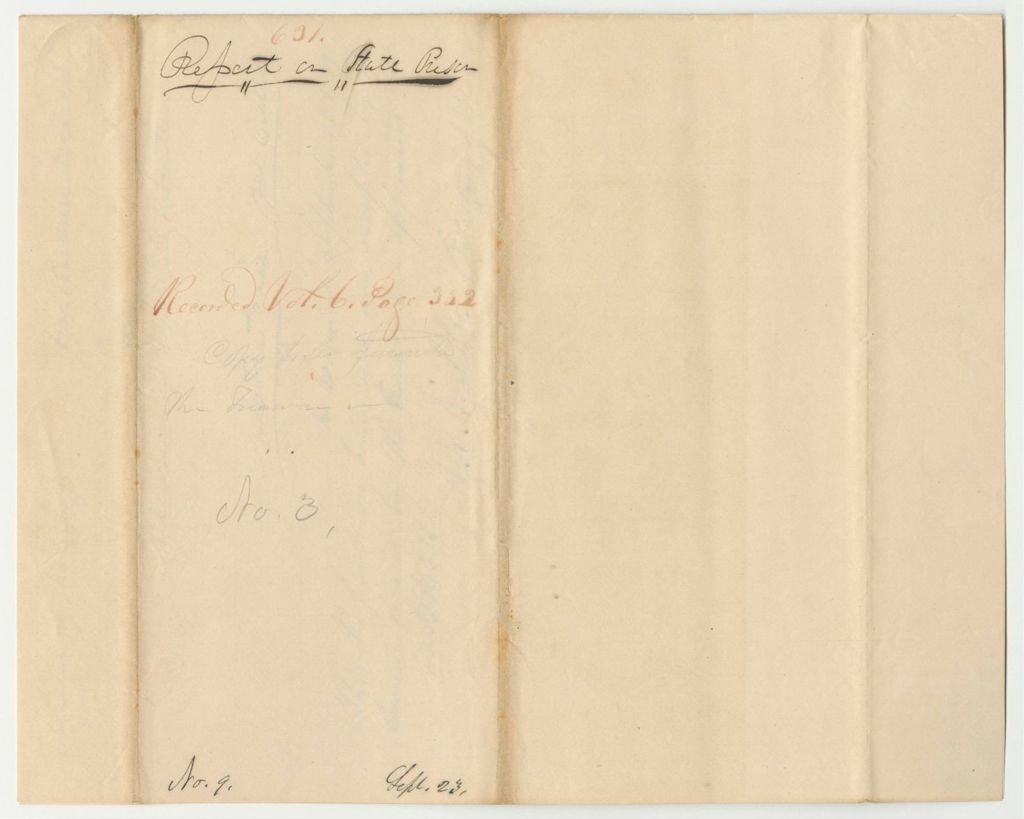 631.
Report on State Prison
Recorded Vol. 6. Page 332
Copy
The
No. 3,
No. 9. Sept. 23,